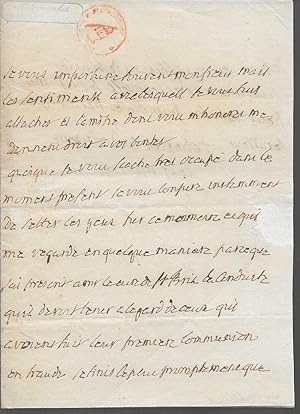 je vous importune souvent monsieur mais
les sentiments avec lesquells je vous suis
attacher et l'amitie dont vous m'honores me
donnent droit a vos bontes
quoique je vous sache tres occupé dans le
moment present je vous conjure instamment
de jetter les yeux sur ce memoire ce qui
me regarde en quelque maniere parceque
j'ai present a mr le curé de st la conduite
qu'il devoit tenir a legard de ceux qui
avoient fait leur premiere communion
en fraude je finis le plus promptement que